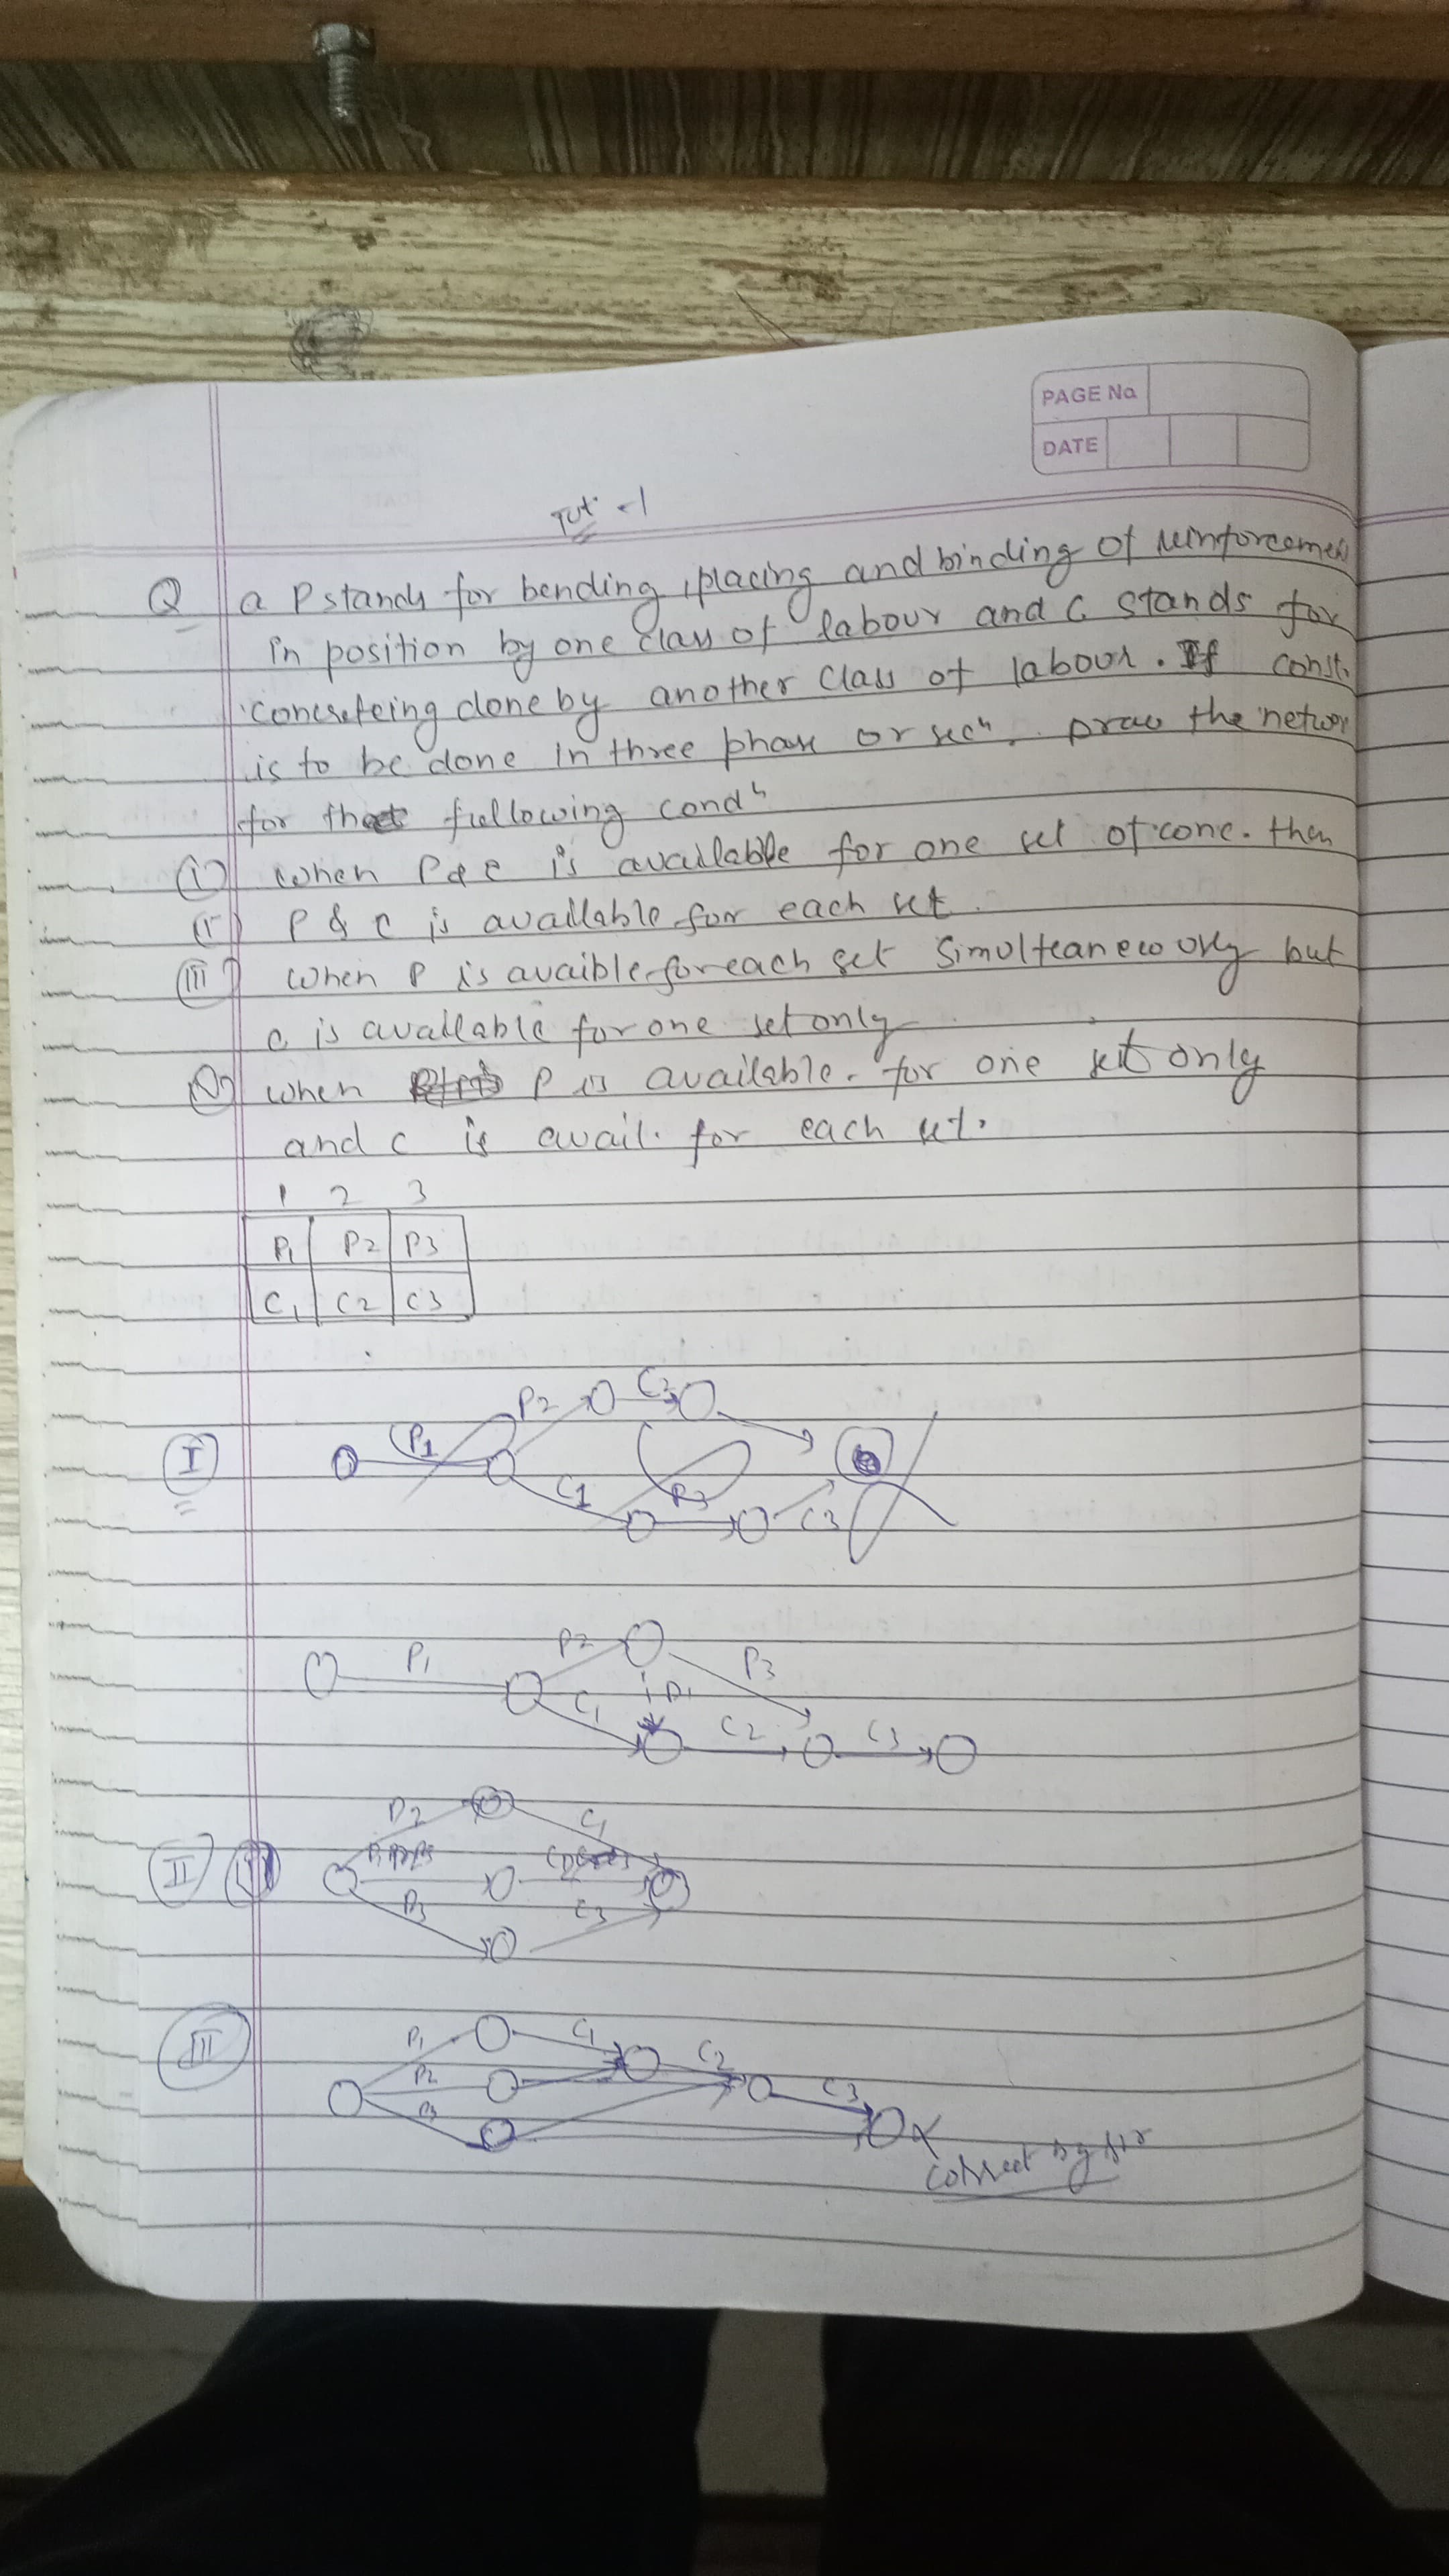 PAGE No
DATE
Tut -1
Q a P stands for bending, placing and binding of reinforcemen
in position by one class of labour and C stands for
concreteing done by another class of labour. If const.
is to be done in three phase or secn. Draw the networ
for the following condn
(i) when P & C is available for one set of conc. then
(ii) P & C is available for each set.
(III) when P is avaible for each set simulteaneously but
C is available for one set only
(IV) when P is available for one set only
and C is avail. for each set.
1 2 3
P1 P2 P3
C1 C2 C3
I P1 P2 C2 C1 P3 C3
P1 P2 P3 C1 D1 C2 C3
II P2 C1 P3 C3
III P1 C1 P2 C2 P3 C3
correct by sir